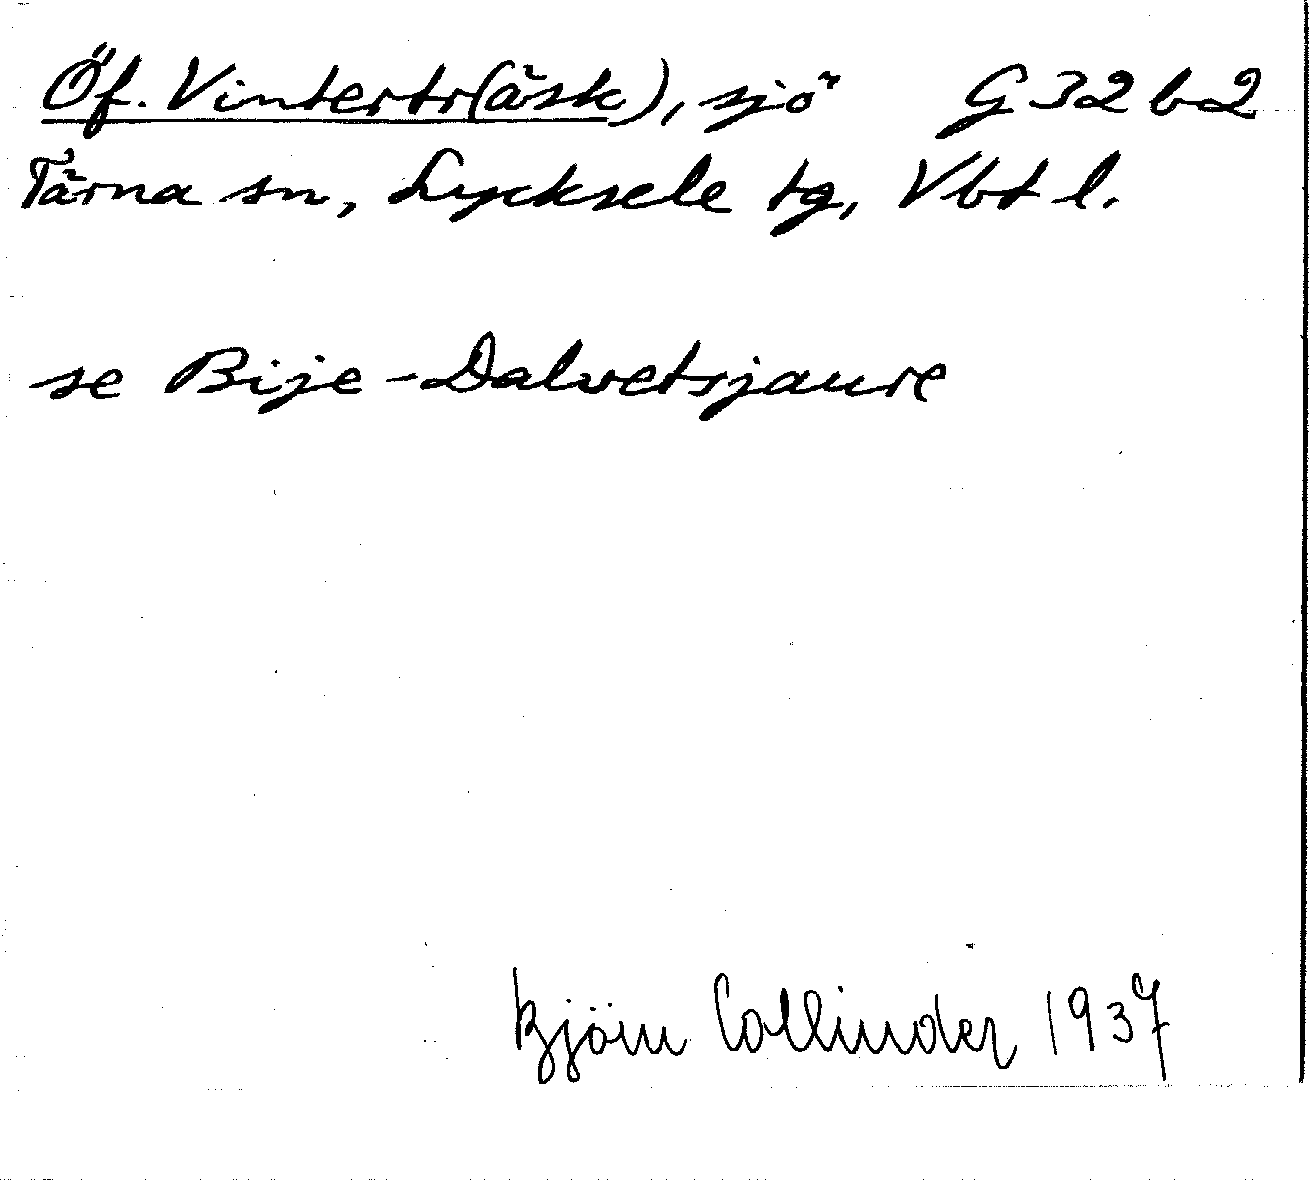 Öf. Vintertr(äsk), sjö G 32 b 2
Tärna sn, Lycksele tg, Vbt l.
se Bije-Dalvetsjaure
Björn Collinder 1937